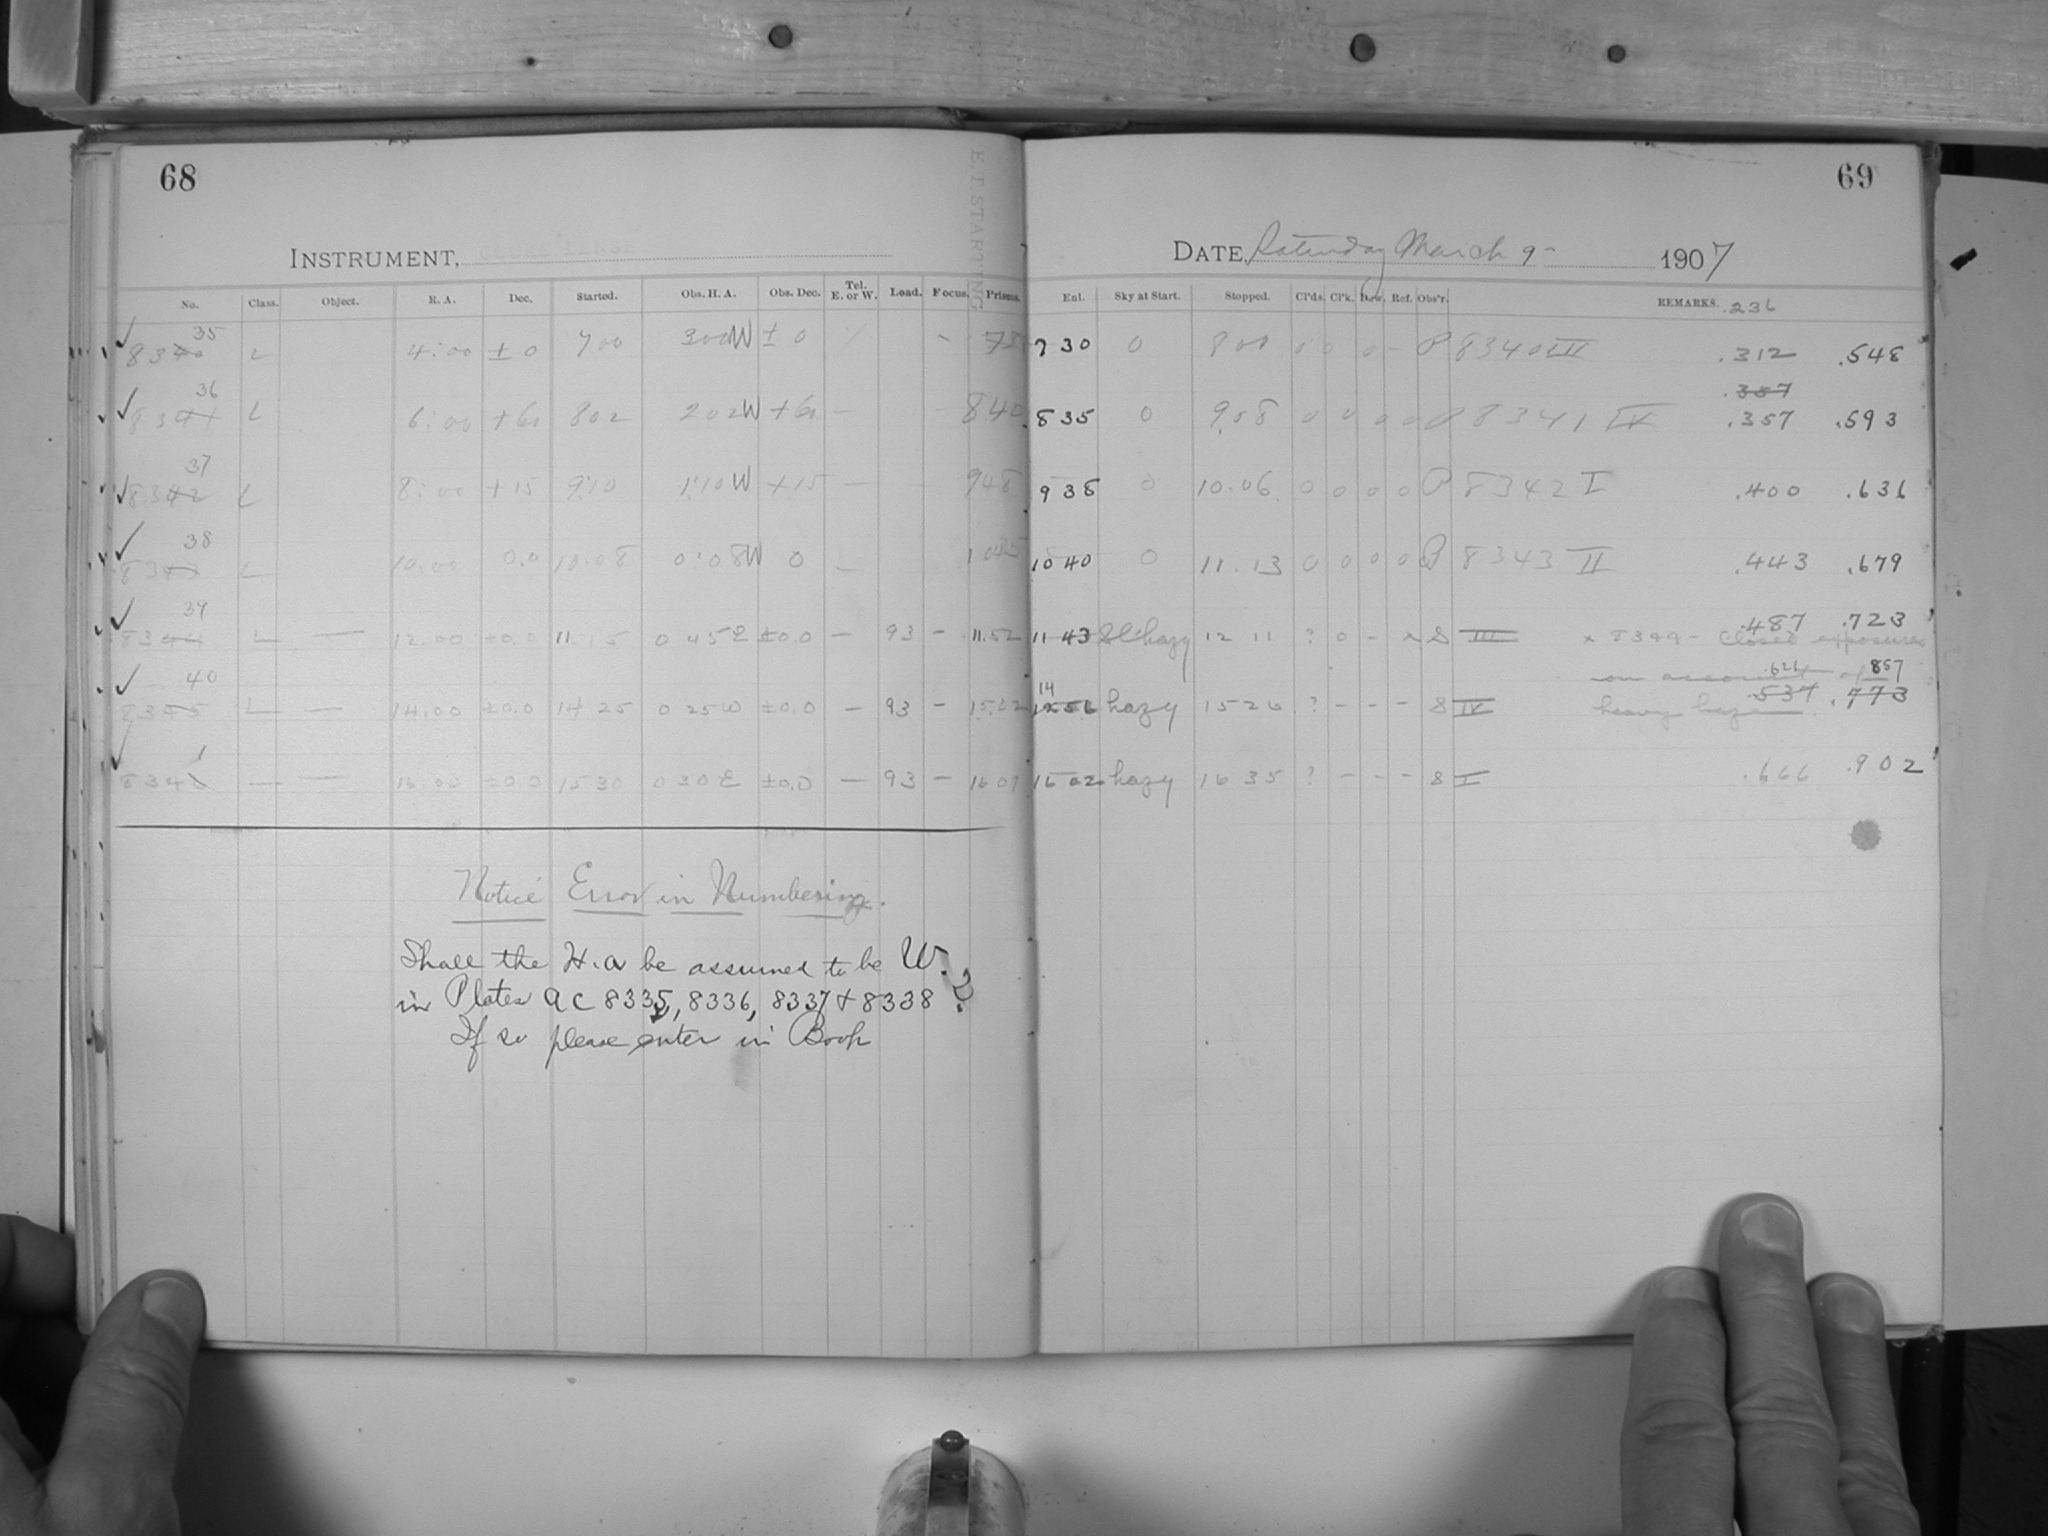 68
E.T. STARTING
INSTRUMENT,
No. Class. Object. R. A. Dec. Started. Obs. H. A. Obs. Dec. Tel. E. or W. Load. Focus. Prisms.
35
8340 L 4:00 ± 0 700 300W ± 0 -
36
8341 L 6:00 +60 802 202W +60 - 840
37
8342 L 8:00 +15 9:10 1:10W +15 - 948
38
8343 L 10:00 0.0 10:08 0:08W 0
39
8344 L — 12.00 ±0.0 11 15 0 45E ±0.0 — 93 - 11.52
40
8345 L — 14.00 ±0.0 14 25 0 25W ±0.0 — 93 - 15.02
1
834 — — 16 00 ±0.0 15 30 0 30E ±0.0 — 93 - 16 07
Notice Error in Numbering.
Shall the H.a be assumed to be W.
in Plates a c 8335, 8336, 8337 + 8338 ?
If so please enter in Book
69
DATE, Saturday March 9- 1907
Enl. Sky at Start. Stopped. Cl'ds. Cl'k. Dew. Ref. Obs'r. REMARKS. .236
7 30 0 8 00 0 0 0 - P 8340 III .312 .548
.357
8 35 0 9.08 0 0 0 0 P 8341 IV .357 .593
9 38 0 10.06 0 0 0 0 P 8342 I .400 .636
10 40 0 11.13 0 0 0 0 P 8343 II .443 .679
.487 .723
11 43 Sl. hazy 12 11 ? 0 - x S III x 8344 - Closed exposures
on account of
.621 .857
14
hazy 15 26 ? - - - S IV heavy haze .537 .773
16 02 hazy 16 35 ? - - - S I .666 .902